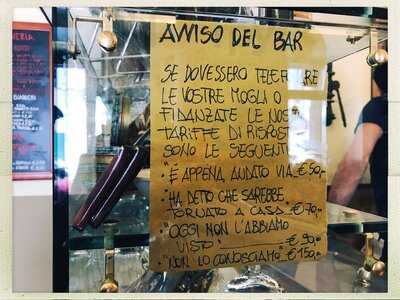 AVVISO DEL BAR
SE DOVESSERO TELEFONARE
LE VOSTRE MOGLI O
FIDANZATE LE NOSTRE
TARIFFE DI RISPOSTA
SONO LE SEGUENTI
• È APPENA ANDATO VIA €50,-
• HA DETTO CHE SAREBBE
TORNATO A CASA €70,-
• "OGGI NON L'ABBIAMO
VISTO" €90,-
• "NON LO CONOSCIAMO" €150,-